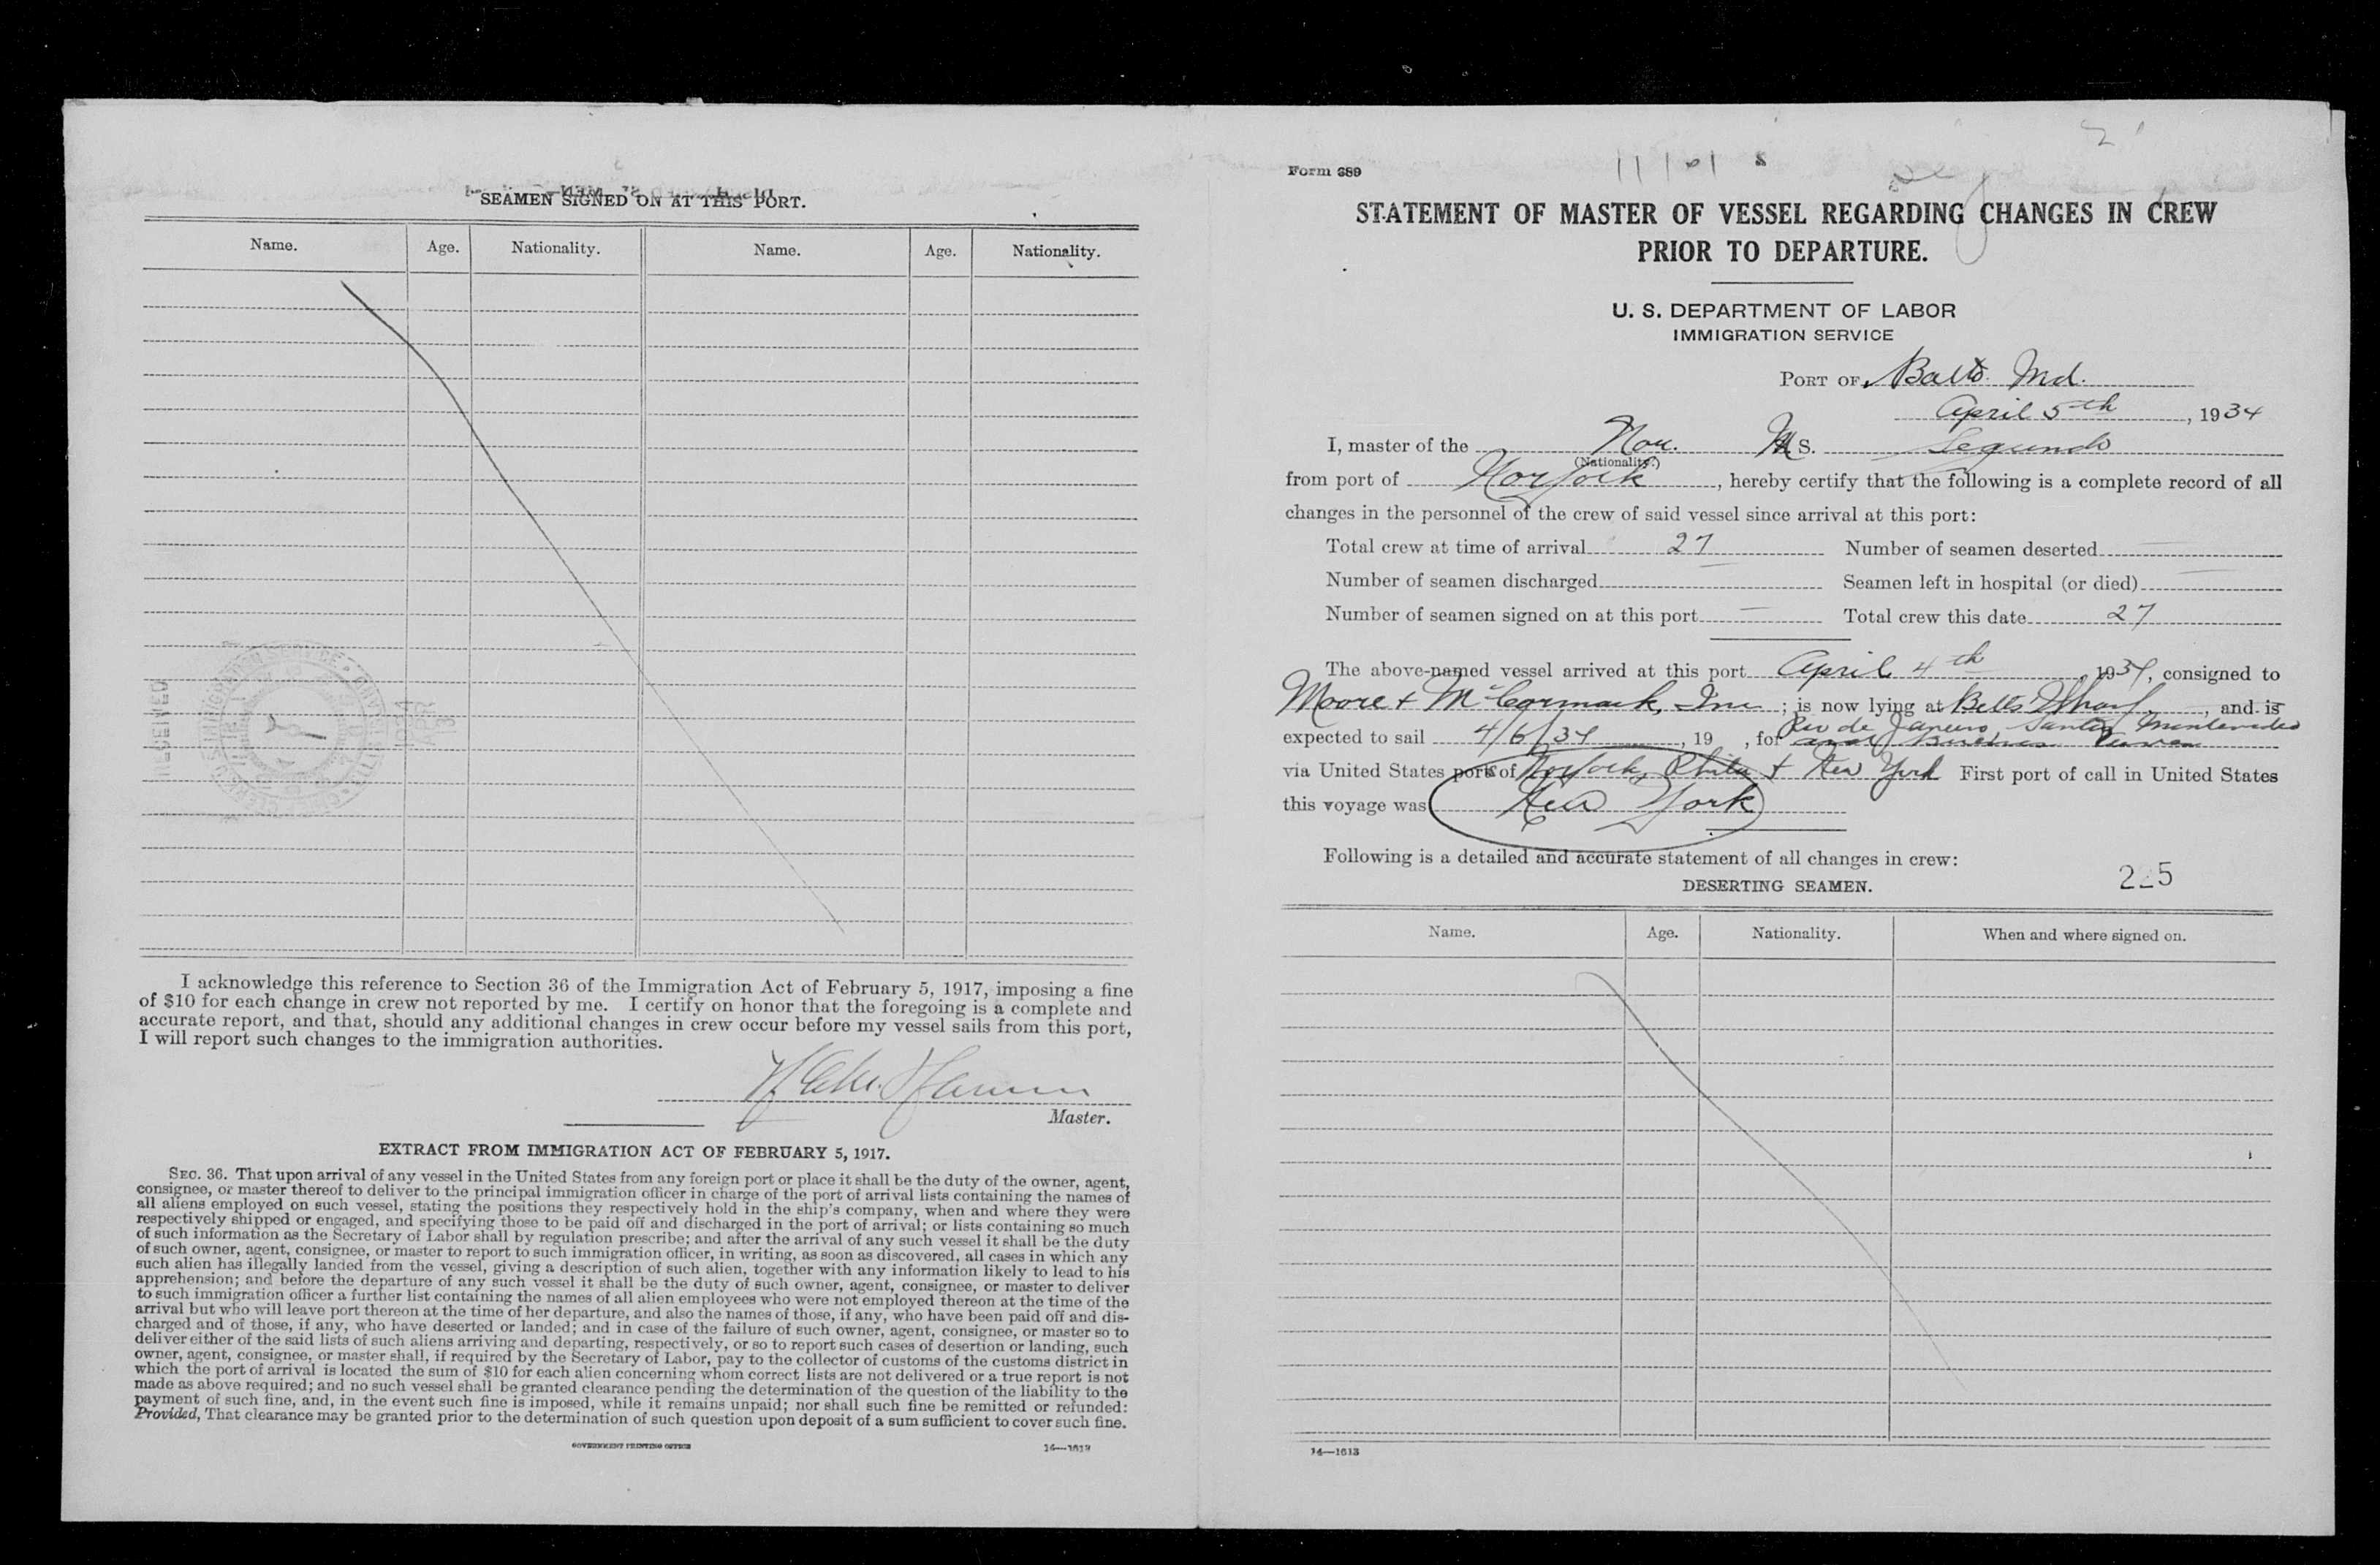 SEAMEN SIGNED ON AT THIS PORT.
Name. Age. Nationality. Name. Age. Nationality.
RECEIVED
I acknowledge this reference to Section 36 of the Immigration Act of February 5, 1917, imposing a fine
of $10 for each change in crew not reported by me. I certify on honor that the foregoing is a complete and
accurate report, and that, should any additional changes in crew occur before my vessel sails from this port,
I will report such changes to the immigration authorities.
Master.
EXTRACT FROM IMMIGRATION ACT OF FEBRUARY 5, 1917.
SEC. 36. That upon arrival of any vessel in the United States from any foreign port or place it shall be the duty of the owner, agent,
consignee, or master thereof to deliver to the principal immigration officer in charge of the port of arrival lists containing the names of
all aliens employed on such vessel, stating the positions they respectively hold in the ship's company, when and where they were
respectively shipped or engaged, and specifying those to be paid off and discharged in the port of arrival; or lists containing so much
of such information as the Secretary of Labor shall by regulation prescribe; and after the arrival of any such vessel it shall be the duty
of such owner, agent, consignee, or master to report to such immigration officer, in writing, as soon as discovered, all cases in which any
such alien has illegally landed from the vessel, giving a description of such alien, together with any information likely to lead to his
apprehension; and before the departure of any such vessel it shall be the duty of such owner, agent, consignee, or master to deliver
to such immigration officer a further list containing the names of all alien employees who were not employed thereon at the time of the
arrival but who will leave port thereon at the time of her departure, and also the names of those, if any, who have been paid off and dis-
charged and of those, if any, who have deserted or landed; and in case of the failure of such owner, agent, consignee, or master so to
deliver either of the said lists of such aliens arriving and departing, respectively, or so to report such cases of desertion or landing, such
owner, agent, consignee, or master shall, if required by the Secretary of Labor, pay to the collector of customs of the customs district in
which the port of arrival is located the sum of $10 for each alien concerning whom correct lists are not delivered or a true report is not
made as above required; and no such vessel shall be granted clearance pending the determination of the question of the liability to the
payment of such fine, and, in the event such fine is imposed, while it remains unpaid; nor shall such fine be remitted or refunded:
Provided, That clearance may be granted prior to the determination of such question upon deposit of a sum sufficient to cover such fine.
GOVERNMENT PRINTING OFFICE 14—1613
Form 689
STATEMENT OF MASTER OF VESSEL REGARDING CHANGES IN CREW
PRIOR TO DEPARTURE.
U. S. DEPARTMENT OF LABOR
IMMIGRATION SERVICE
PORT OF Balto. Md.
April 5th, 1934
I, master of the Nor. M S. Segundo
(Nationality.)
from port of Norfolk, hereby certify that the following is a complete record of all
changes in the personnel of the crew of said vessel since arrival at this port:
Total crew at time of arrival 27 Number of seamen deserted —
Number of seamen discharged — Seamen left in hospital (or died) —
Number of seamen signed on at this port — Total crew this date 27
The above-named vessel arrived at this port April 4th 1934, consigned to
Moore + McCormack, Inc; is now lying at Belts Wharf, and is
expected to sail 4/6/34, 19 , for Rio de Janeiro Santos Montevideo
and Buenos
via United States ports of Norfolk, Phila + New York First port of call in United States
this voyage was New York
Following is a detailed and accurate statement of all changes in crew:
DESERTING SEAMEN.
Name. Age. Nationality. When and where signed on.
14—1613